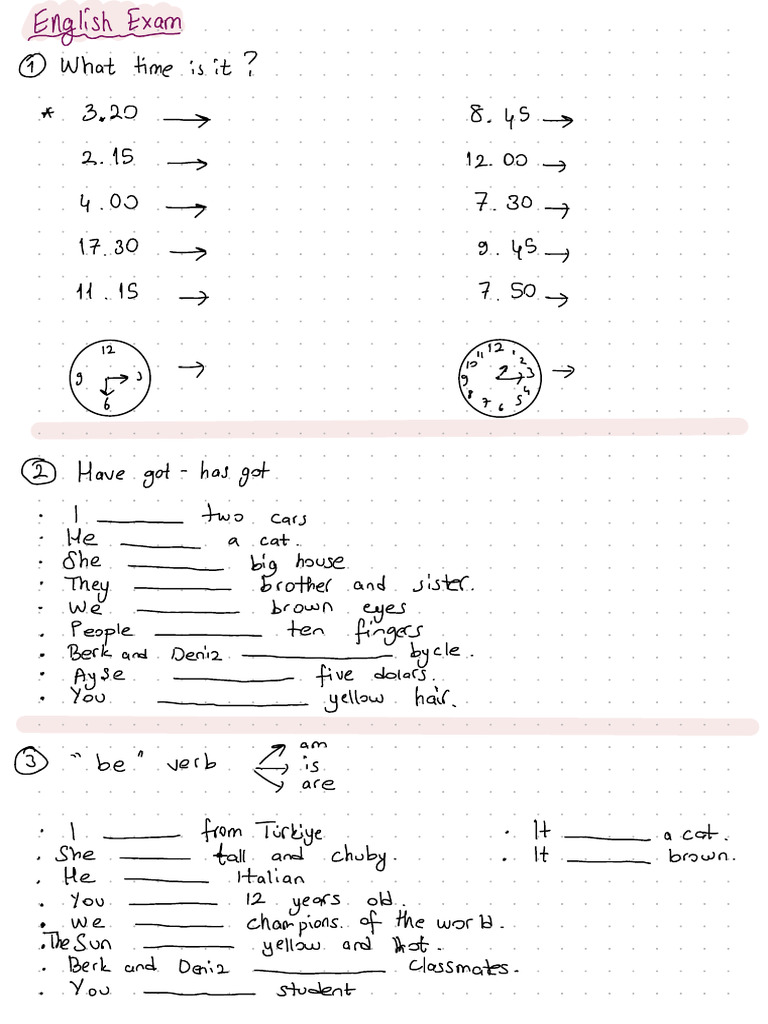 English Exam
① What time is it?
* 3.20 → 8.45 →
2.15 → 12.00 →
4.00 → 7.30 →
17.30 → 9.45 →
11.15 → 7.50 →
12 3 6 9
12 1 2 3 4 5 6 7 8 9 10 11
② Have got - has got
• I ______ two cars
• He ______ a cat.
• She ______ big house
• They ______ brother and sister.
• We ______ brown eyes
• People ______ ten fingers
• Berk and Deniz ______ bycle.
• Ayşe ______ five dolars.
• You ______ yellow hair.
③ "be" verb → am
→ is
→ are
• I ______ from Türkiye • It ______ a cat.
• She ______ tall and chuby. • It ______ brown.
• He ______ Italian
• You ______ 12 years old.
• We ______ champions of the world.
• The Sun ______ yellow and hot.
• Berk and Deniz ______ classmates.
• You ______ student